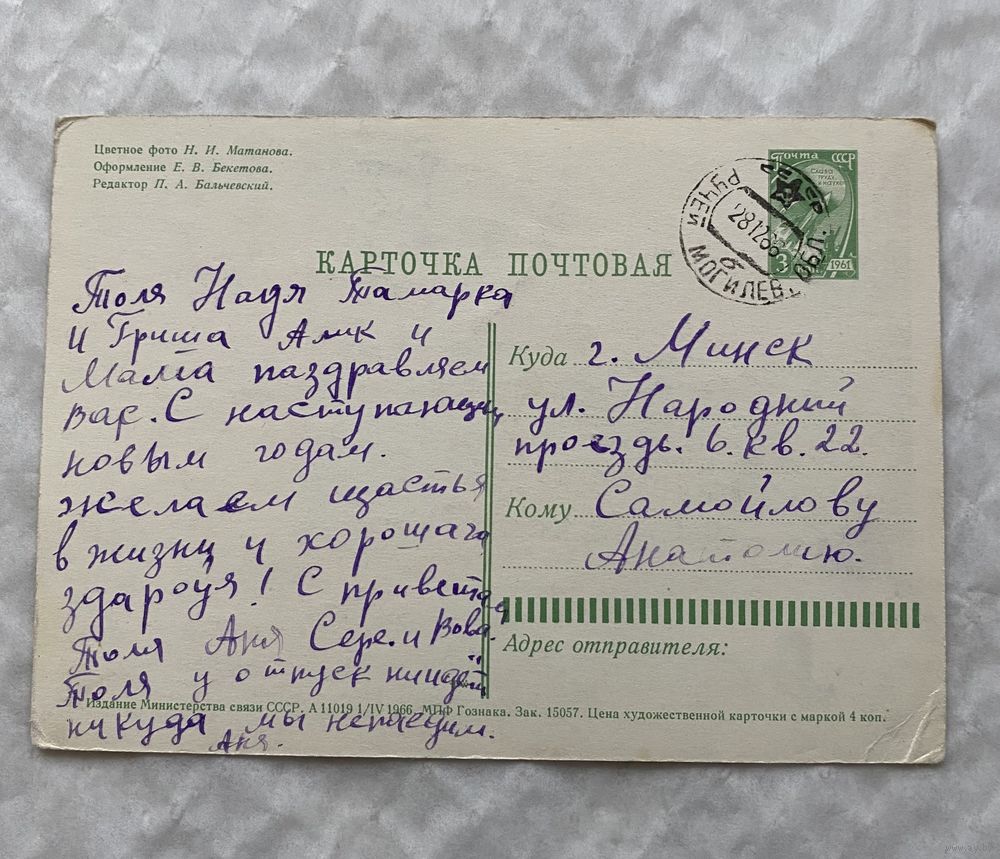 Цветное фото Н. И. Матанова.
Оформление Е. В. Бекетова.
Редактор П. А. Бальчевский.
Почта СССР
СЛАВА
ТРУДУ
И НАУКЕ
3
1961
РУЧЕЙ
28126
МОГИЛЕВ. ОБЛ.
КАРТОЧКА ПОЧТОВАЯ
Толя Надя Тамарка
и Гриша Алик и
Мама паздравляем
вас. С наступающим
новым годам.
желаем щастья
в жизни и хорошага
здароуя! С приветам
Толя Аня Сере. и Вова.
Толя у отпуск ниидёт
никуда мы непаедим.
Аня.
Куда г. Минск
ул. Народний
проездь. 6. кв. 22.
Кому Самойлову
Анатолию.
Адрес отправителя:
Издание Министерства связи СССР. А 11019 1/IV 1966. МПФ Гознака. Зак. 15057. Цена художественной карточки с маркой 4 коп.